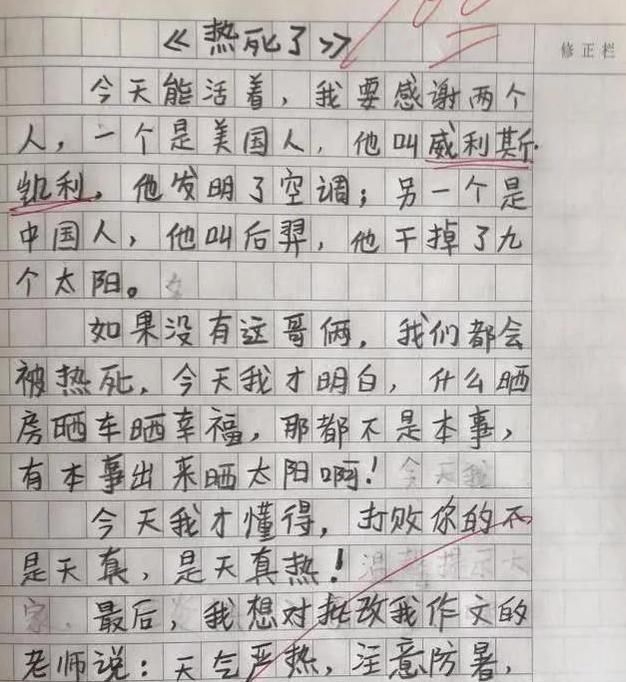 修正栏
《热死了》
今天能活着，我要感谢两个
人，一个是美国人，他叫威利斯·
凯利，他发明了空调；另一个是
中国人，他叫后羿，他干掉了九
个太阳。
如果没有这哥俩，我们都会
被热死，今天我才明白，什么晒
房晒车晒幸福，那都不是本事，
有本事出来晒太阳啊！今天我
今天我才懂得，打败你的不
是天真，是天真热！温馨提示大
家．最后，我想对批改我作文的
老师说：天气严热，注意防暑，